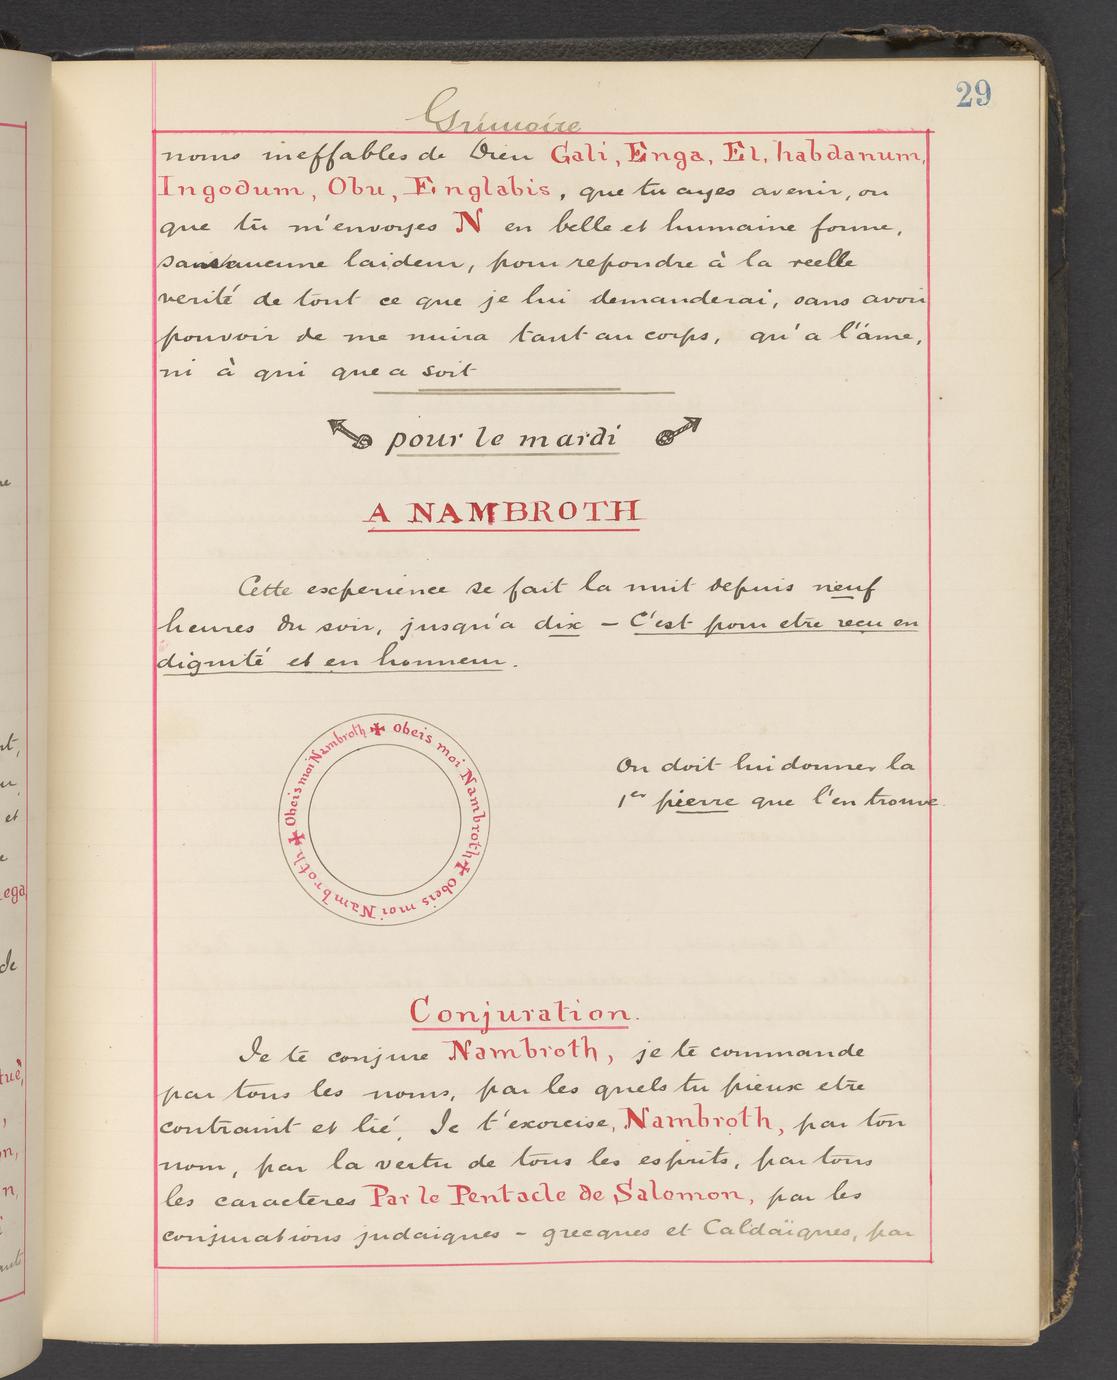 29
Grimoire
noms ineffables de Dieu Gali, Enga, El, habdanum,
Ingodum, Obu, Englabis, que tu ayes avenir, ou
que tu m'envoyes N en belle et humaine forme,
sans aucune laideur, pour repondre à la reelle
verité de tout ce que je lui demanderai, sans avoir
pouvoir de me nuira tant au corps, qu'a l'âme,
ni à qui que a soit
pour le mardi
A NAMBROTH
Cette experience se fait la nuit depuis neuf
heures du soir, jusqu'a dix – C'est pour etre recu en
dignité et en honneur.
✠ Obeis moi Nambroth ✠ Obeis moi Nambroth ✠ Obeis moi Nambroth
On doit lui donner la
1er pierre que l'en trouve
Conjuration.
Je te conjure Nambroth, je te commande
par tous les noms, par les quels tu pieux etre
contraint et lié. Je t'exorcise, Nambroth, par ton
nom, par la vertu de tous les esprits, par tous
les caracteres Par le Pentacle de Salomon, par les
conjurations judaiques – grecques et Caldaïques, par